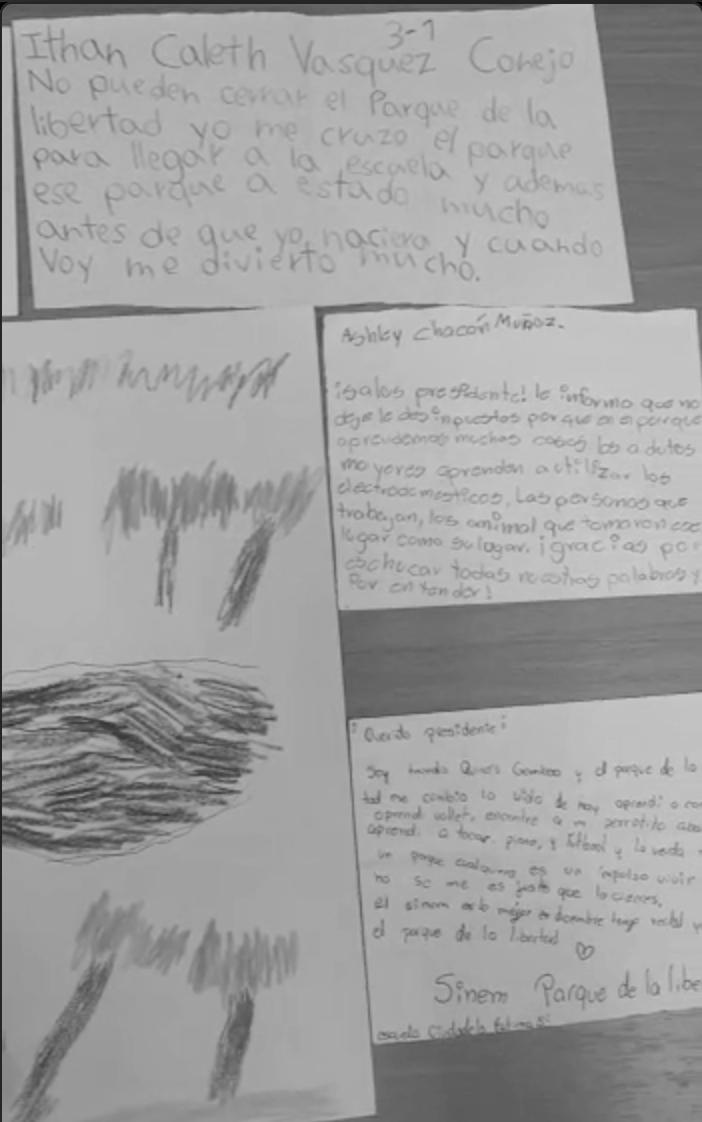 3-1
Ithan Caleth Vasquez Conejo
No pueden cerrar el Parque de la
libertad yo me cruzo el parque
para llegar a la escuela y ademas
ese parque a estado mucho
antes de que yo naciera y cuando
Voy me divierto mucho.
Ashley Chacón Muñoz.
presidente! le informo que no
deje le des inpuestos porque en el parque
aprendemos muchas cosas los adutos
mayores aprenden a utilizar los
electrodomesticos, Las personas que
trabajan, los animal que tomaron ese
lugar como su lugar. ¡gracias por
eschucar todas nuestras palabras y
Por entender!
Querido presidente:
Soy Quiros Gamboa y el parque de la
tad me cambio la vida de hay aprendi a
aprendi vollet, encontre a mi perrotito
aprendi a tocar piano, y futbol y la verda
un parque cualquiera es un inpulso vivir
no se me es justo que lo cierres,
el sinem es lo mejor en diciembre tengo
el parque de la libertad
Sinem Parque de la libe
escuela Ciudadela Fatima